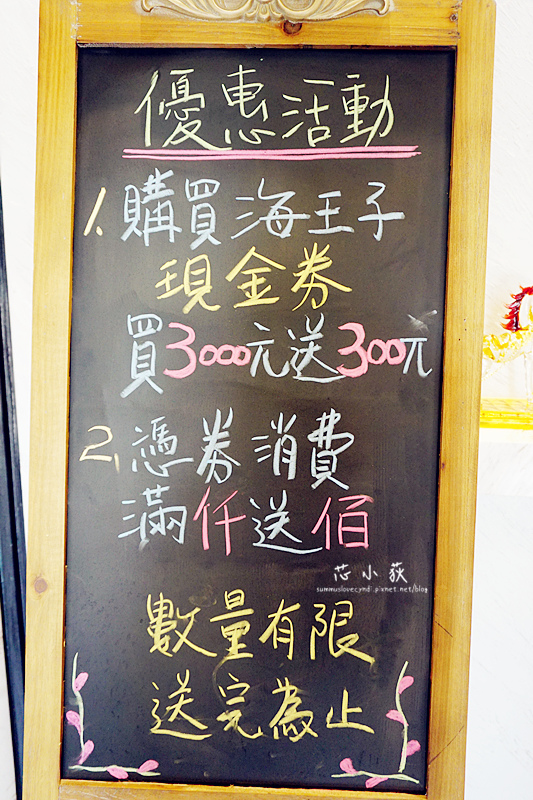 優惠活動
1. 購買海王子
現金券
買3000元送300元
2. 憑券消費
滿仟送佰
芯小荻
summuslovecyndi.pixnet.net/blog
數量有限
送完為止